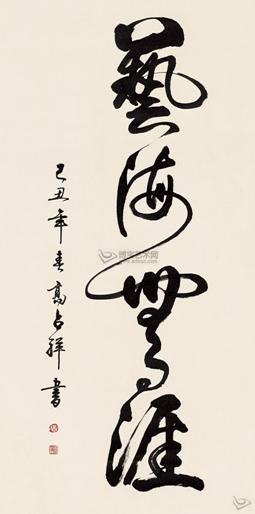 藝海無涯
己丑年春高占祥書
博宝艺术网